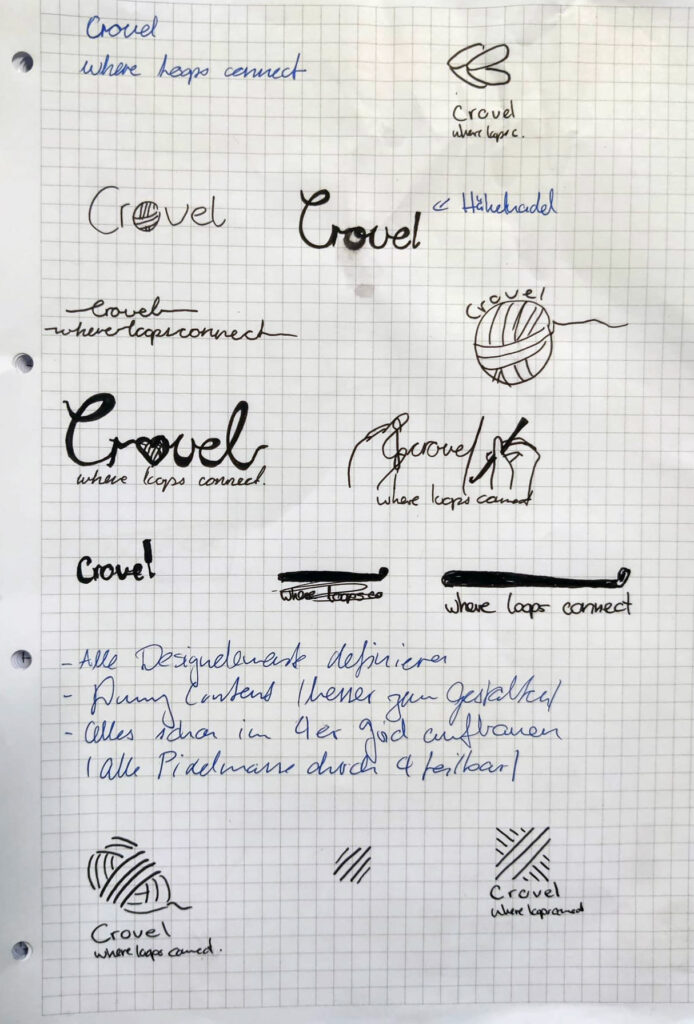 Crovel
where loops connect
Crovel
where loops c.
Crovel
Crovel
<< Häkelnadel
Crovel
where loops connect
Crovel
Crovel
where loops connect.
crovel
where loops connect
Crovel
where loops co
where loops connect
- Alle Designelemente definieren
- Dummy Content (besser zum Gestalten)
- Alles schon im 4er Grid aufbauen
(alle Pixelmasse durch 4 teilbar)
Crovel
where loops connect.
Crovel
where loops connect